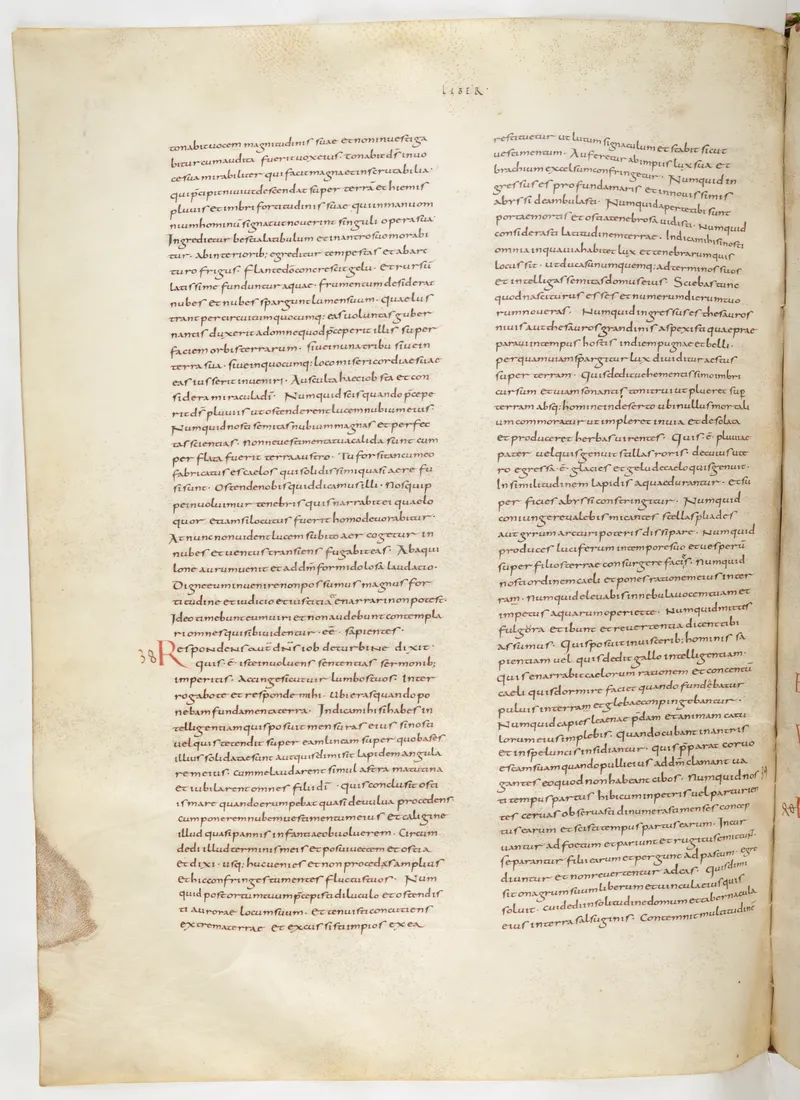 LIBER
tonabit uocem magnitudinis suae et non inuestiga
bitur cum audita fuerit uox eius. Tonabit ds̄ in uo
ce sua mirabiliter qui facit magna et inscrutabilia.
qui p̄cipit niui ut descendat super terrā et hiemis
pluuiis et imbri fortitudinis suae. qui in manu om
nium hominū signat ut nouerint singuli opera sua.
Ingredietur bestia latibulum et in antro suo morabi
tur. Ab interiorib; egredietur tempestas et ab arc
turo frigus. flante dō concrescit gelu. et rursū
latissime funduntur aquae. frumentum desiderat
nubes et nubes spargunt lumen suum. quae lus
trant per circuitum quocumq: eas uoluntas guber
nantis duxerit ad omne quod p̄ceperit illis super
faciem orbis terrarum. siue in una tribu siue in
terra sua. siue in quocumq: loco misericordiae suae
eas iusserit inueniri. Ausculta haec iob sta et con
sidera miracula dī. Numquid scis quando p̄cepe
rit ds̄ pluuiis ut ostenderent lucem nubium eius.
Numquid nosti semitas nubium magnas et perfec
tas scientias. Nonne uestimenta tua calida sunt cum
per flata fuerit terra austro. Tu forsitan cum eo
fabricatus es caelos qui solidissimi quasi aere fu
si sunt. Ostende nobis quid dicamus illi. Nos quip
pe inuoluimur tenebris quis narrabit ei quae lo
quor. etiam si locutus fuerit homo deuorabitur.
At nunc non uident lucem subito aer cogetur in
nubes et uentus transiens fugabit eas. Ab aqui
lone aurum uenit et ad dm̄ formidolosa laudatio.
Digne eum inuenire non possumus magnus for
titudine et iudicio et iustitia et enarrari non potest.
Ideo timebunt eum uiri et non audebunt contempla
ri omnes qui sibi uidentur. eē. sapientes.
38 Respondens aut̄ dn̄s iob de turbine dixit.
quis. ē. iste inuoluens sententias sermonib;
imperitis. Accinge sicut uir lumbos tuos. Inter
rogabo te et responde mihi. Ubi eras quando po
nebam fundamenta terrae. Indica mihi si habes in
tellegentiam quis posuit mensuras eius si nosti
uel quis tetendit super eam lineam super quo bases
illius solidatae sunt aut quis dimisit lapidem angula
rem eius. cum me laudarent simul astra matutina
et iubilarent omnes filii dī. quis conclusit osti
is mare quando erumpebat quasi de uulua procedens
cum ponerem nubem uestimentum eius et caligine
illud quasi pannis infantiae obuoluerem. Circum
dedi illud terminis meis et posui uectem et ostia
et dixi. usq; huc uenies et non procedes amplius
et hic confringes tumentes fluctus tuos. Num
quid post ortum tuum p̄cepisti diluculo et ostendis
ti aurorae locum suum. et tenuisti concutiens
extrema terrae et excussisti impios ex ea
restituetur ut lutum signaculum et stabit sicut
uestimentum. Auferetur ab impiis lux sua et
brachium excelsum confringetur. Numquid in
gressus es profunda maris et in nouissimis
abyssi deambulasti. Numquid apertae tibi sunt
portae mortis et ostia tenebrosa uidisti. Numquid
considerasti latitudinem terrae. Indica mihi si nosti
omnia in qua uia habitet lux et tenebrarum quis
locus sit. ut ducas unumquemq: ad terminos suos
et intelligas semitas domus eius. Sciebas tunc
quod nasciturus esses et numerum dierum tuo
rum noueras. Numquid ingressus es thesauros
niuis aut thesauros grandinis aspexisti quae prae
paraui in tempus hostis in diem pugnae et belli.
per quam uiam spargitur lux diuiditur aestus
super terram. Quis dedit uehementissimo imbri
cursum et uiam sonantis tonitrui ut plueret sup̄
terram absq; homine in deserto ubi nullus mortali
um commoratur ut impleret inuia et desolata
et produceret herbas uirentes. Quis. ē. pluuiae
pater uel quis genuit stillas roris. de cuius ute
ro egressa. ē. glacies et gelu de caelo quis genuit.
In similitudinem lapidis aquae durantur. et sū
per ficies abyssi constringitur. Numquid
coniungere ualebis micantes stellas pliades
aut gyrum arcturi poteris dissipare. Numquid
produces luciferum in tempore suo et uesperū
super filios terrae consurgere facis. Numquid
nosti ordinem caeli et pones rationem eius in ter
ram. Numquid eleuabis in nebula uocem tuam et
impetus aquarum operiet te. Numquid mittes
fulgora et ibunt et reuertentia dicent tibi
assumus. Quis posuit in uiscerib; hominis sa
pientiam uel quis dedit gallo intelligentiam.
quis enarrabit caelorum rationem et concentū
caeli quis dormire faciet quando fundebatur
puluis in terram et glebae compingebantur.
Numquid capies leaenae p̄dam et animam catu
lorum eius implebis. Quando cubant in antris
et in speluncis insidiantur. quis p̄parat coruo
escam suam quando pulli eius ad dm̄ clamant ua
gantes eo quod non habeant cibos. Numquid nos
ti tempus partus hibicum in petris uel parturien
tes ceruas obseruasti dinumerasti menses concep
tus earum et scisti tempus partus earum. Incur
uantur ad foetum et pariunt et rugitus emittunt.
separantur filii earum et pergunt ad pastum. egre
diuntur et non reuertentur ad eas. Quis dimi
sit onagrum suum liberum et uincula eius quis
soluit. cui dedi in solitudine domum et tabernacula
eius in terra salsuginis. Contemnit multitudinē